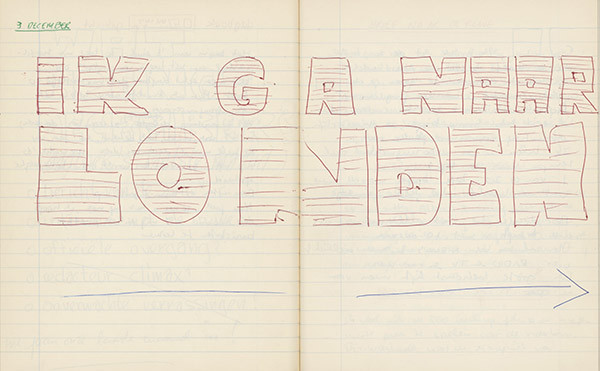 3 DECEMBER
IK GA NAAR
LONDEN